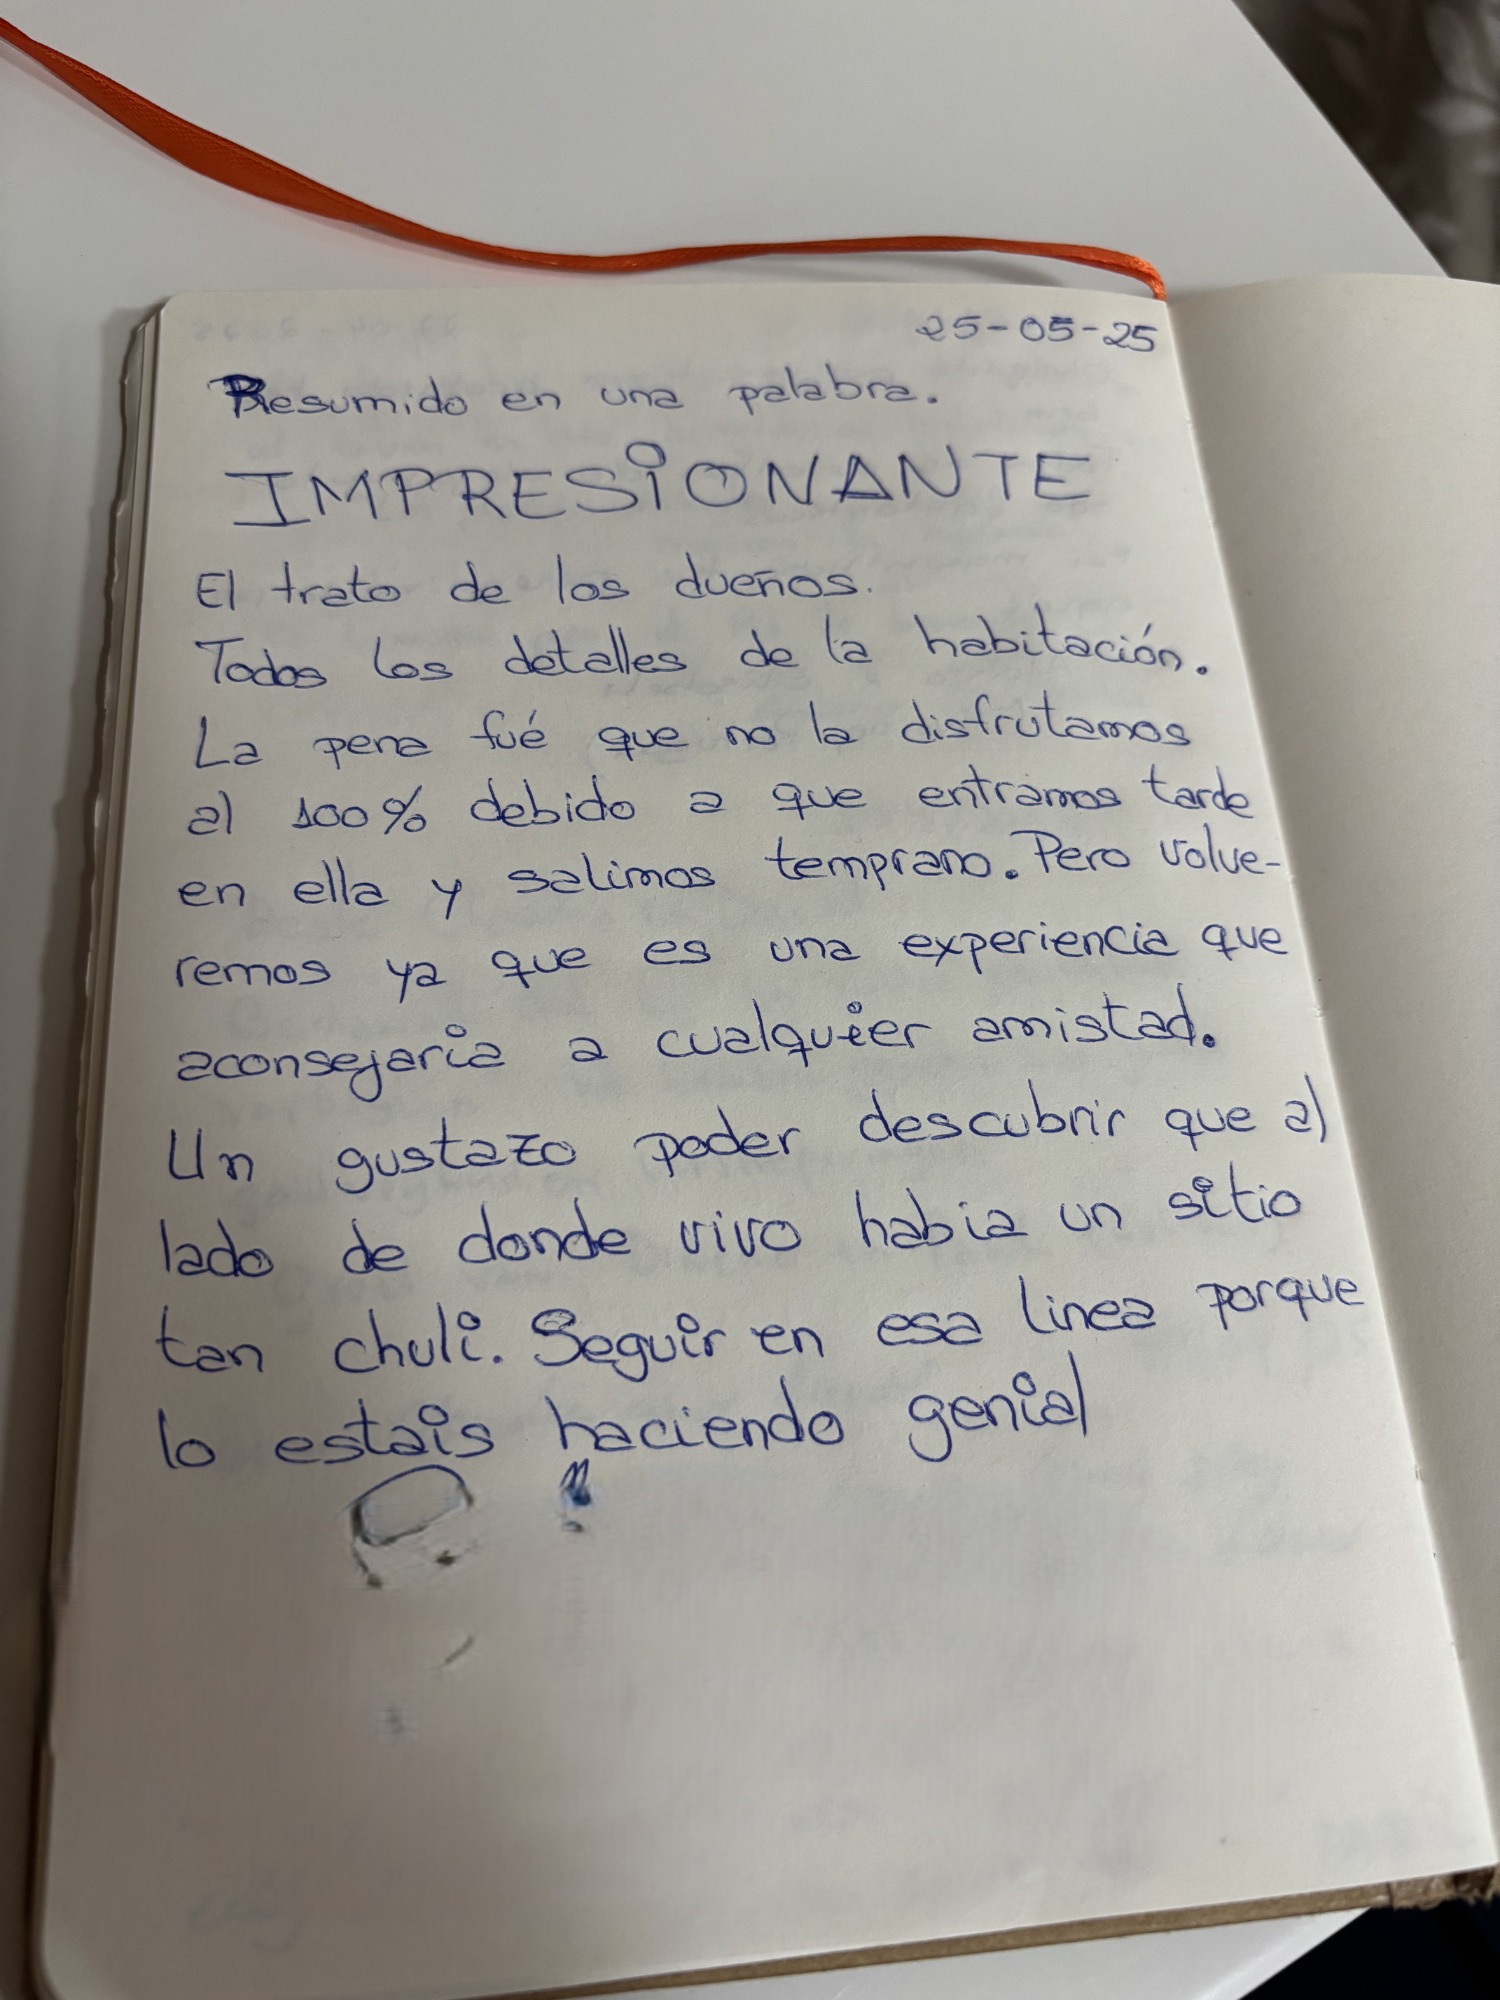 25-05-25
Resumido en una palabra.
IMPRESIONANTE
El trato de los dueños.
Todos los detalles de la habitación.
La pena fué que no la disfrutamos
al 100% debido a que entramos tarde
en ella y salimos temprano. Pero volve-
remos ya que es una experiencia que
aconsejaria a cualquier amistad.
Un gustazo poder descubrir que al
lado de donde vivo habia un sitio
tan chuli. Seguir en esa linea porque
lo estais haciendo genial